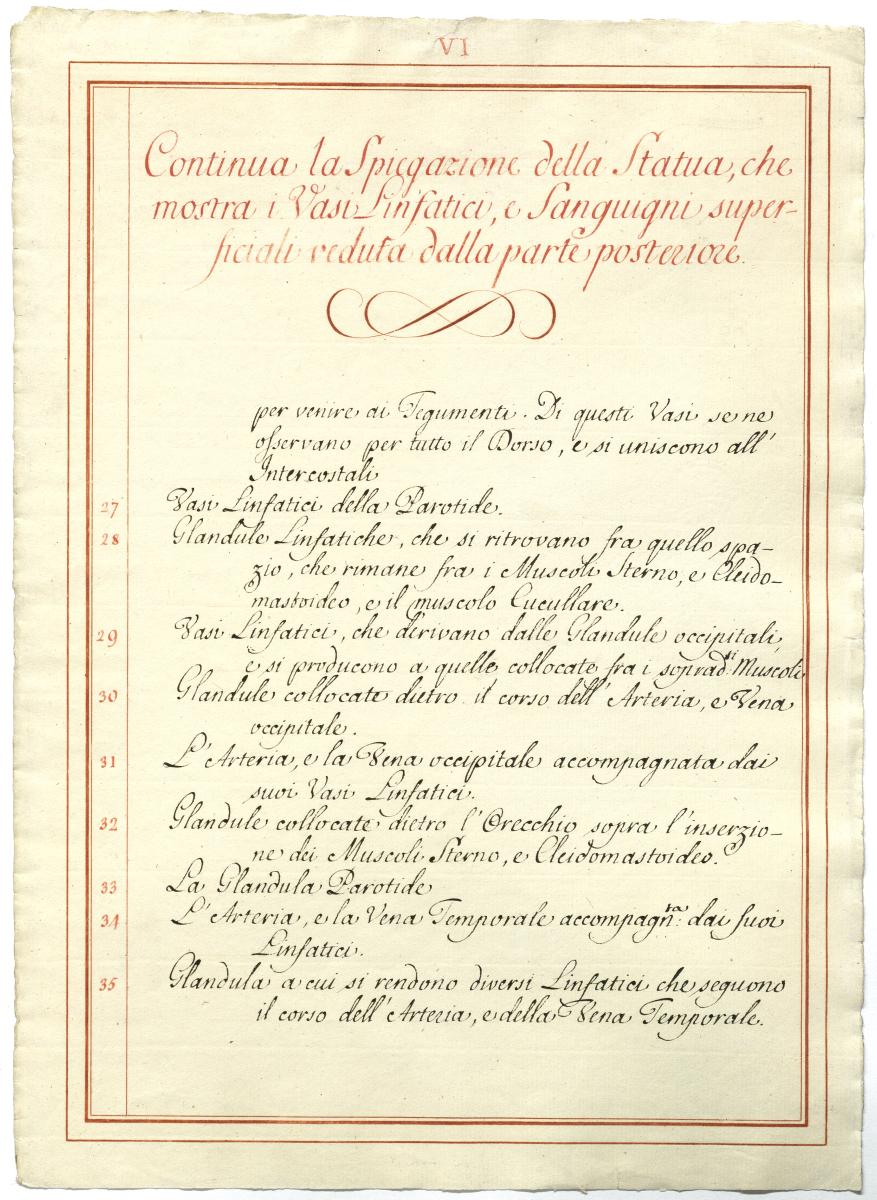 VI
Continua la Spiegazione della Statua, che
mostra i Vasi Linfatici, e Sanguigni super-
ficiali veduta dalla parte posteriore.
per venire ai Tegumenti. Di questi Vasi se ne
oſservano per tutto il Dorso, e si uniscono all'
Intercostali
27 Vasi Linfatici della Parotide.
28 Glandule Linfatiche, che si ritrovano fra quello spa-
zio, che rimane fra i Muscoli Sterno, e Cleido-
mastoideo, e il muscolo Cucullare.
29 Vasi Linfatici, che derivano dalle Glandule occipitali,
e si producono a quelle collocate fra i soprad.ti Muscoli
30 Glandule collocate dietro il corso dell'Arteria, e Vena
occipitale.
31 L'Arteria, e la Vena occipitale accompagnata dai
suoi Vasi Linfatici.
32 Glandule collocate dietro l'Orecchio sopra l'inserzio-
ne dei Muscoli Sterno, e Cleidomastoideo.
33 La Glandula Parotide
34 L'Arteria, e la Vena Temporale accompagn.ta dai suoi
Linfatici.
35 Glandula a cui si rendono diversi Linfatici che seguono
il corso dell'Arteria, e della Vena Temporale.